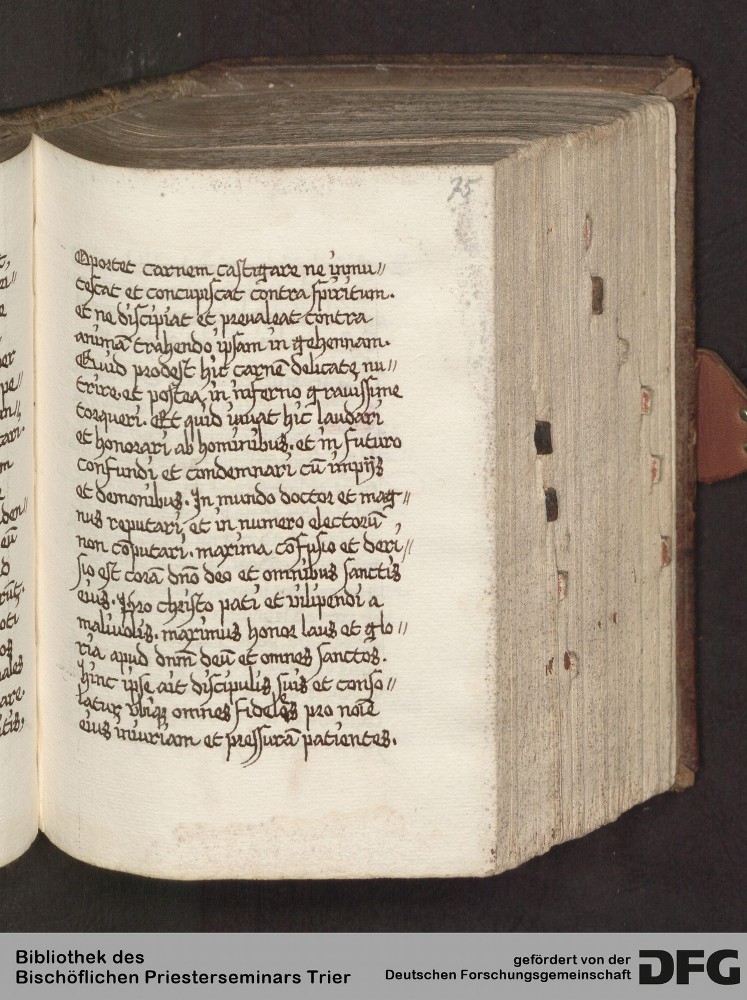 75
Oportet carnem castigare ne inmu//
tescat et concupiscat contra spiritum.
et ne discipiat et preualeat contra
animā trahendo ipsam in gehennam.
Quid prodest hic carnē delicate nu//
trire. et postea in inferno grauissime
torqueri. Et quid iuuat hic laudari
et honorari ab hominibus. et in futuro
confundi et condemnari cū impijs
et demonibus. In mundo doctor et mag//
nus reputari et in numero electorū
non cōputari. maxima cōfusio et deri//
sio est corā dno deo et omnibus sanctis
eius. Pro christo pati et vilipendi a
maliuolis. maximus honor laus et glo//
ria apud dnm deū et omnes sanctos.
Hinc ipse ait discipulis suis et conso//
latur vbiqꝫ omnes fideles pro noīe
eius iniuriam et pressurā patientes.
er
pe//
tari.
m
den//
eū
oti
os
ales
are.
Bibliothek des
Bischöflichen Priesterseminars Trier
gefördert von der
Deutschen Forschungsgemeinschaft
DFG